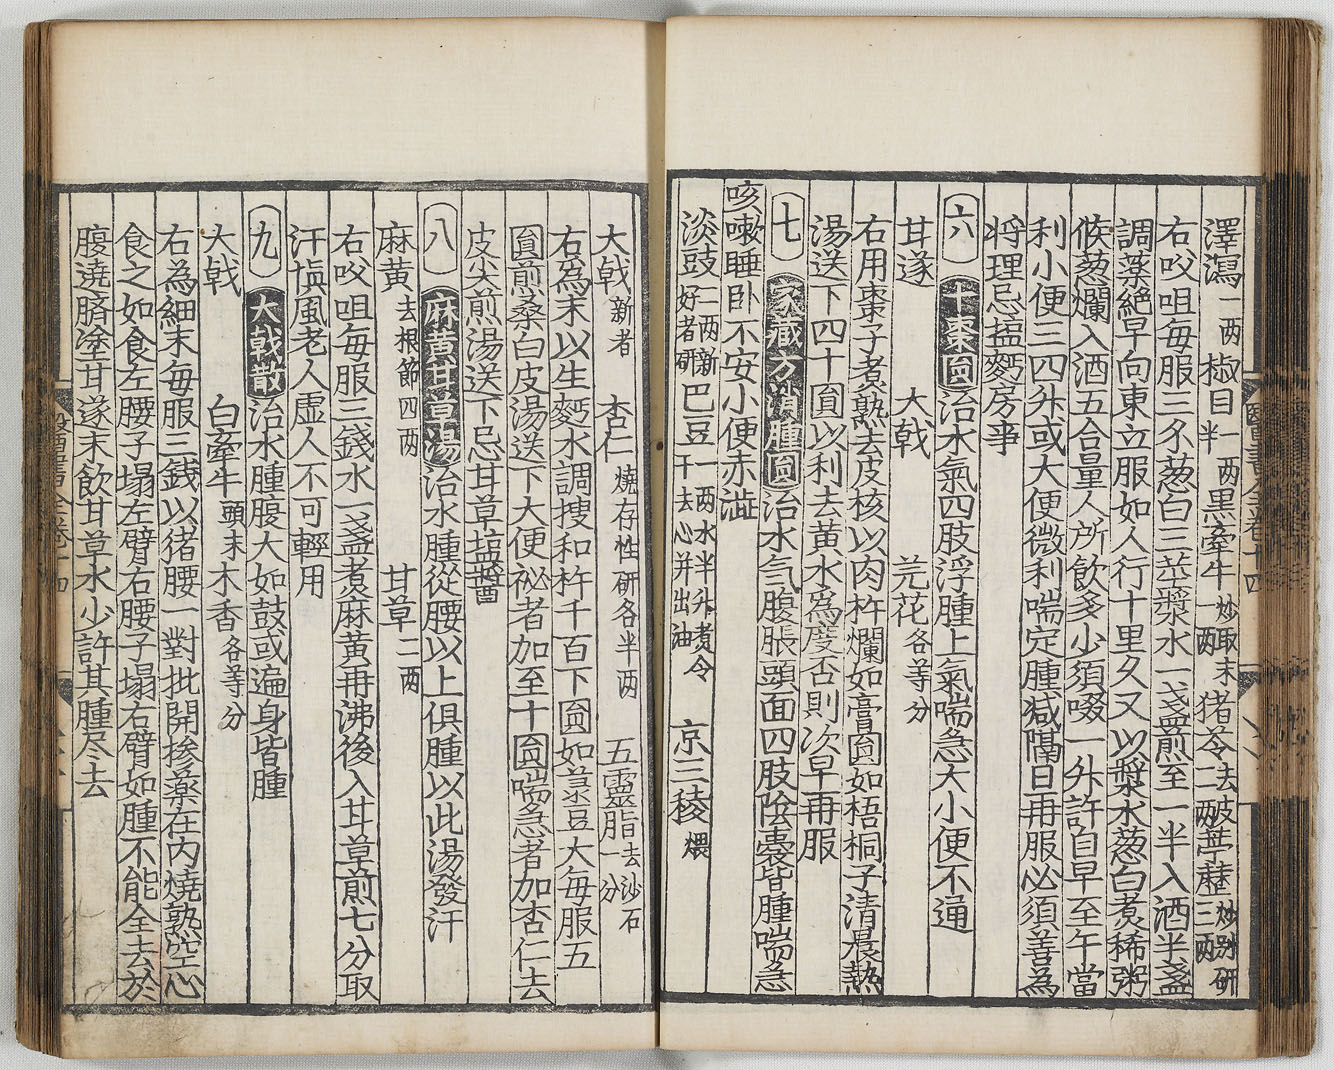 澤瀉一两 椒目一两半 黒牽牛炒取末一两 猪苓去皮二两 葶藶炒別研三两
右㕮咀每服三分葱白三莖漿水一盞煎至一半入酒半盞
調藥絶早向東立服如人行十里久又以漿水葱白煮稀粥
候葱爛入酒五合量人所飲多少須啜一升許自早至午當
利小便三四升或大便微利喘定腫减隔日再服必須善為
将理忌塩麪房事
六 十棗圎 治水氣四肢浮腫上氣喘急大小便不通
甘遂 大戟 芫花各等分
右用棗子煮熟去皮核以肉杵爛如膏圎如梧桐子清晨熱
湯送下四十圎以利去黄水為度否則次早再服
七 家藏方消腫圎 治水气腹脹頭面四肢陰囊皆腫喘急
咳嗽睡卧不安小便赤澁
淡豉二两新好者研 巴豆一两水半升煮令干去心并出油 京三稜煨
大戟新者 杏仁燒存性研各半两 五靈脂去沙石一分
右為末以生麪水調搜和杵千百下圎如菉豆大每服五
圎煎桑白皮湯送下大便祕者加至十圎喘急者加杏仁去
皮尖煎湯送下忌甘草塩醬
八 麻黄甘草湯 治水腫從腰以上俱腫以此湯發汗
麻黄去根節四两 甘草二两
右㕮咀每服三錢水一盞煮麻黄再沸後入甘草煎七分取
汗慎風老人虚人不可輕用
九 大戟散 治水腫腹大如鼓或遍身皆腫
大戟 白牽牛頭末 木香各等分
右為細末每服三錢以猪腰一對批開摻藥在内燒熟空心
食之如食左腰子塌左臂右腰子塌右臂如腫不能全去於
腹遶臍塗甘遂末飲甘草水少許其腫尽去